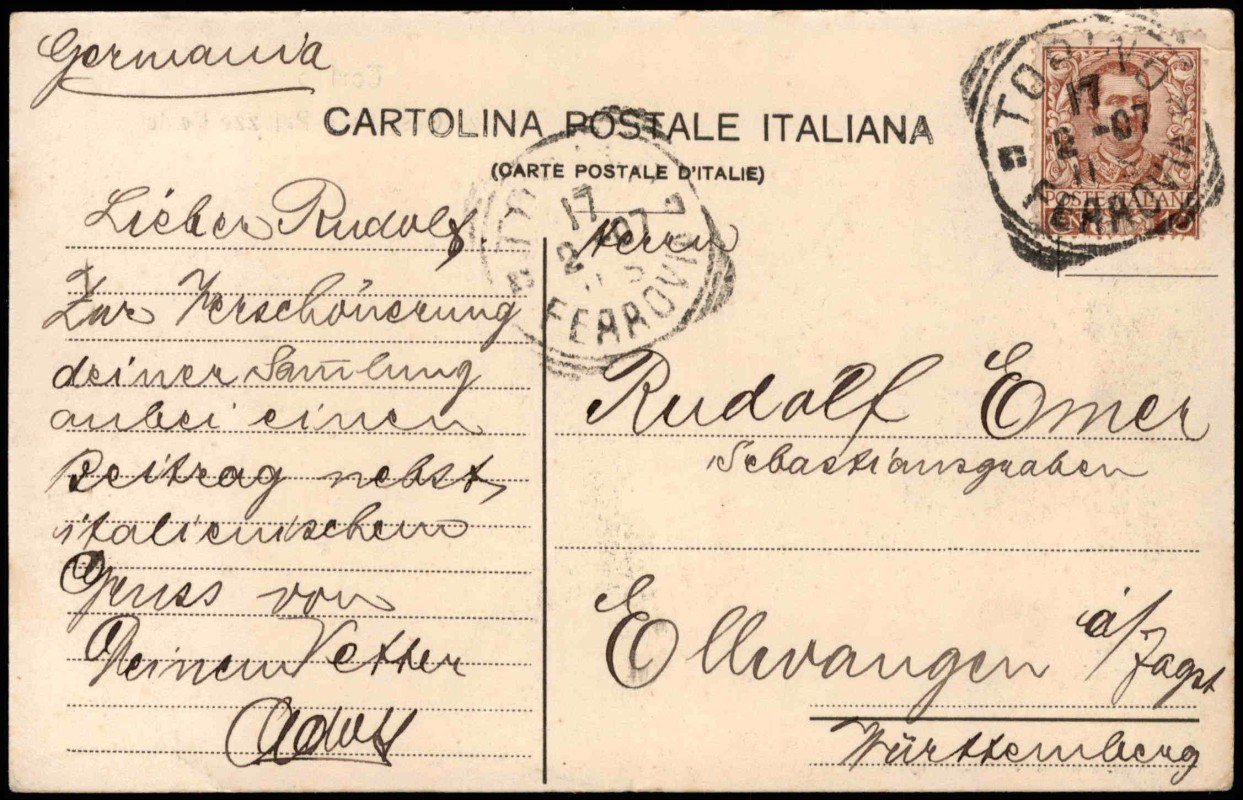 Germania
CARTOLINA POSTALE ITALIANA
(CARTE POSTALE D'ITALIE)
Lieber Rudolf.
Zur Verschönerung
deiner Sam̄lung
anbei einen
Beitrag nebst
italienischem
Gruss von
Deinem Vetter
Adolf
17
2 -07
FERROVIA
TORINO
17
2 -07
11
FERROVIA
POSTE ITALIANE
Herrn
Rudolf Emer
Sebastiansgraben
Ellwangen a/Jagst
Württemberg